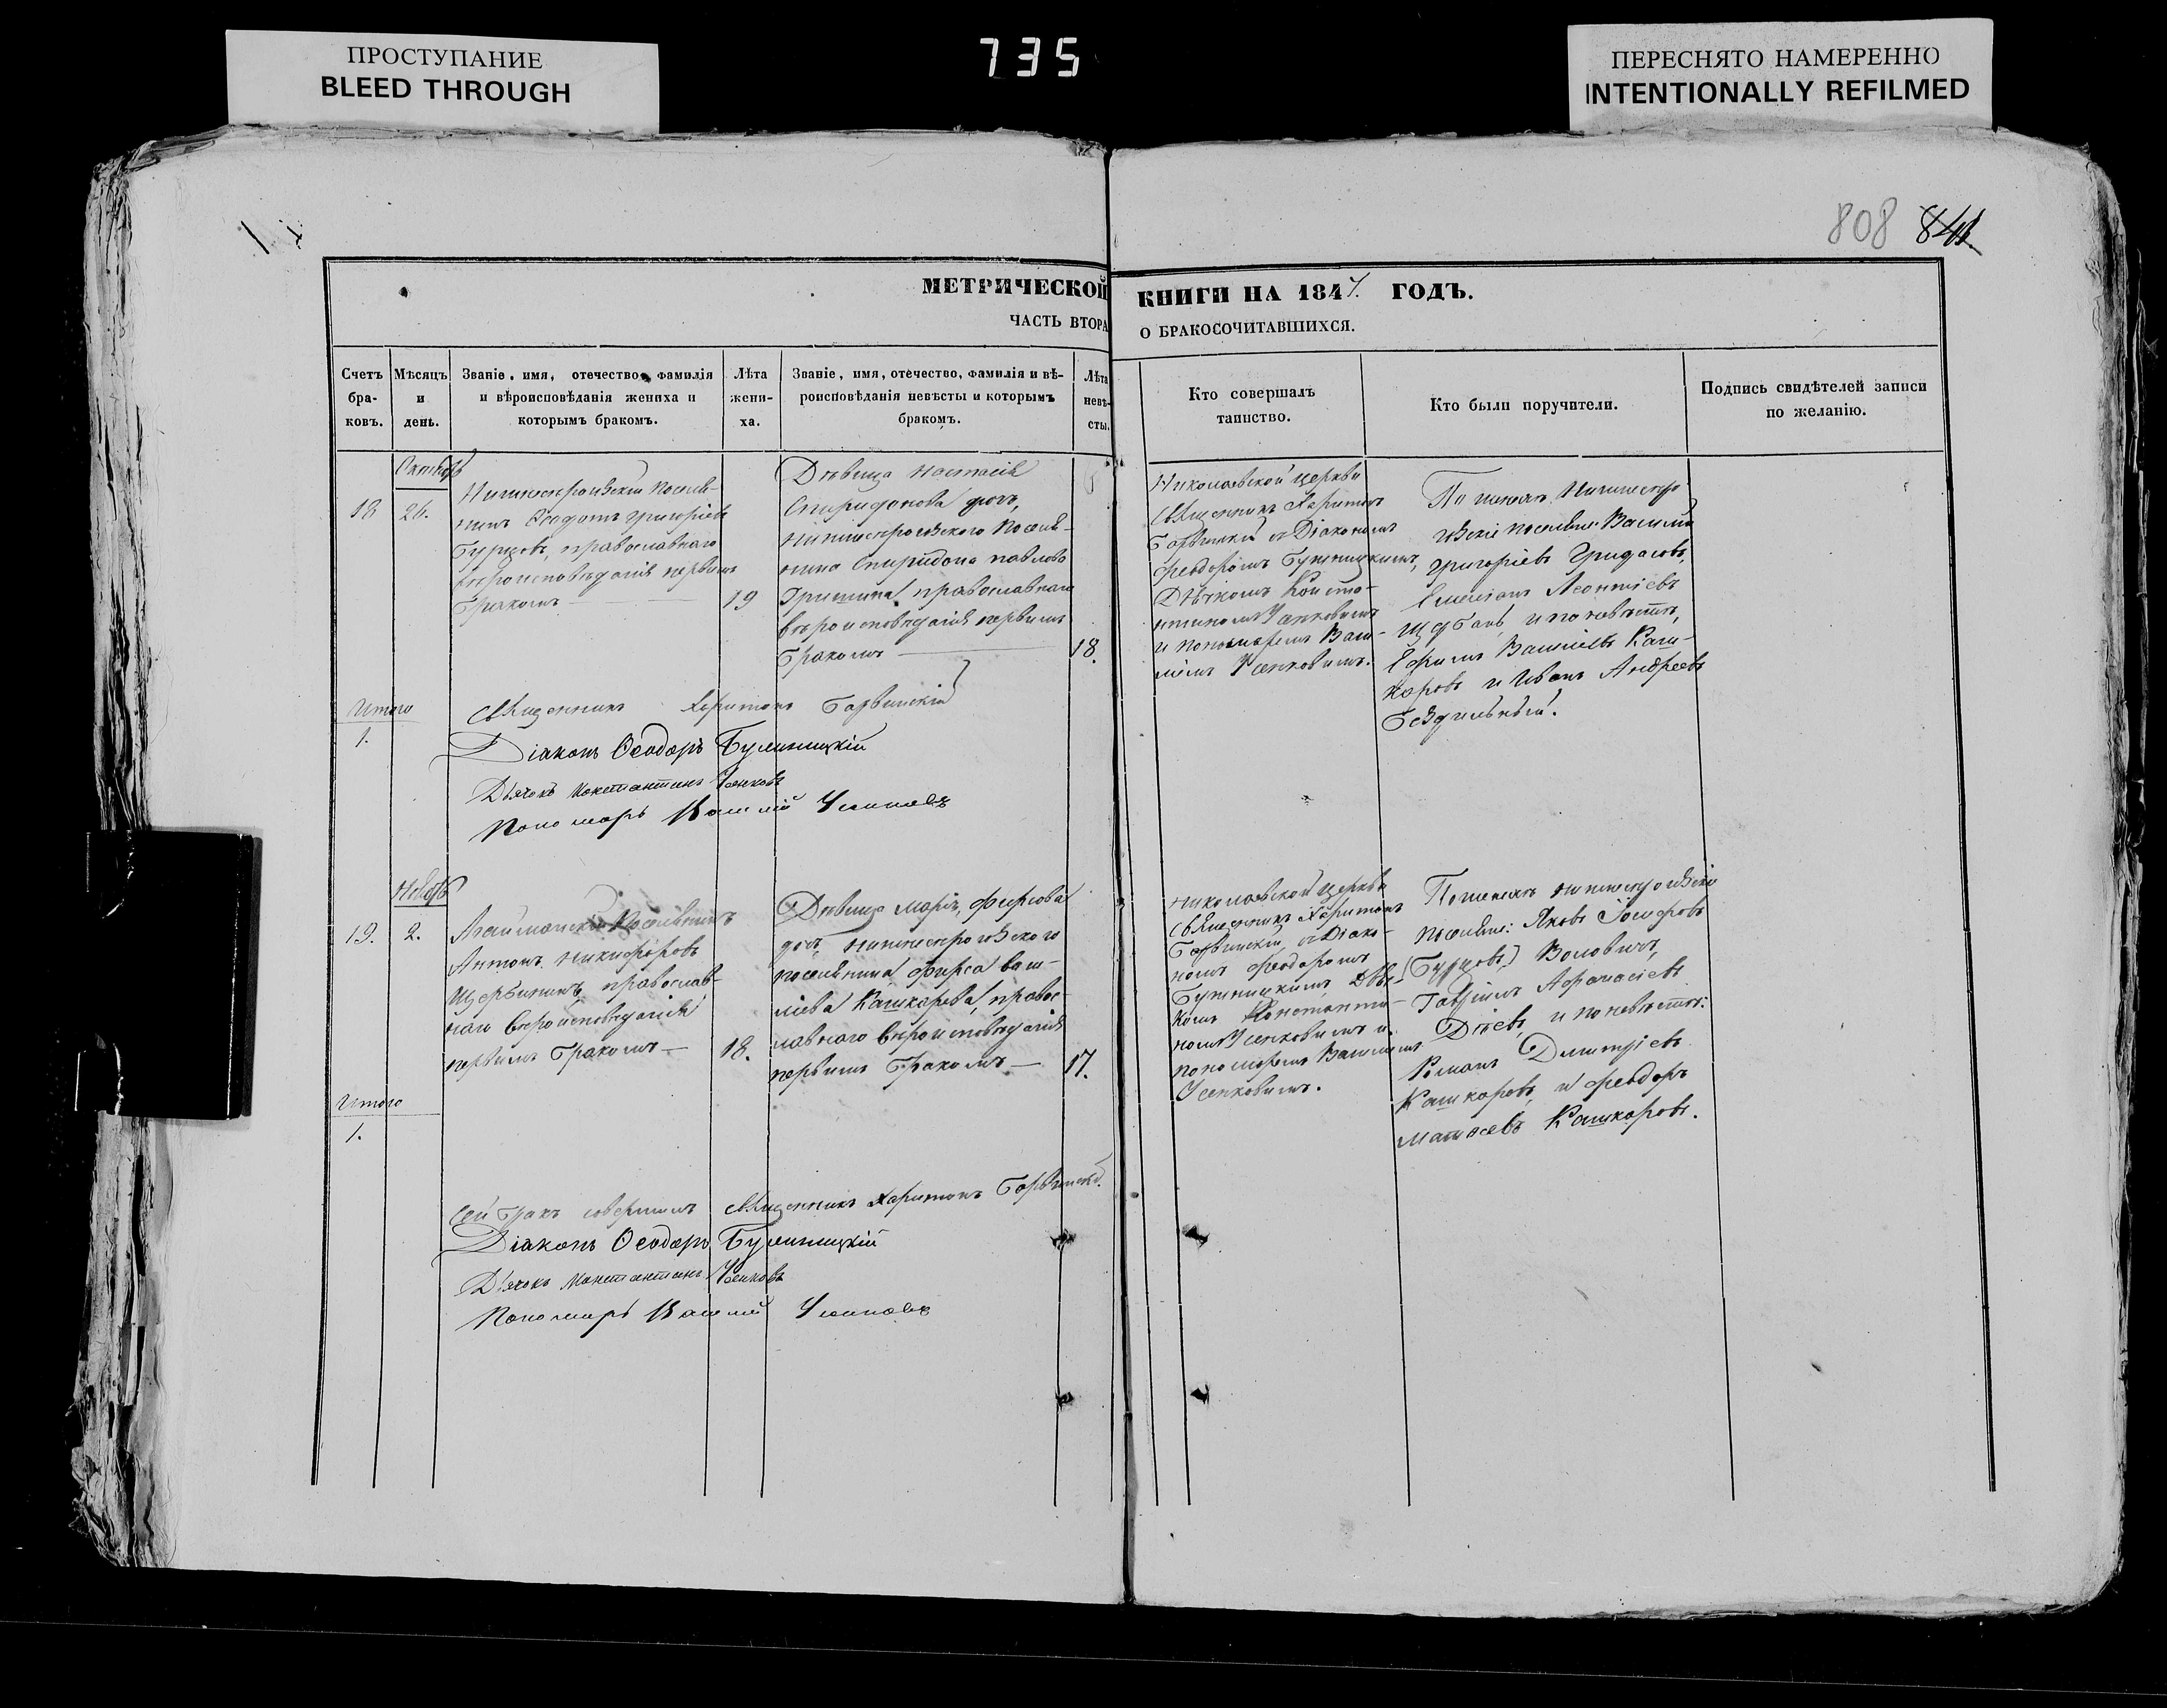 ПРОСТУПАНИЕ
BLEED THROUGH
735
ПЕРЕСНЯТО НАМЕРЕННО
INTENTIONALLY REFILMED
808 841
МЕТРИЧЕСКОЙ КНИГИ НА 1847. ГОДЪ.
ЧАСТЬ ВТОРА О БРАКОСОЧИТАВШИХСЯ.
Счетъ
бра-
ковъ.
Мѣсяцъ
и
день.
Званіе, имя, отечество, фамилія
и вѣроисповѣданія жениха и
которымъ бракомъ.
Лѣта
жени-
ха.
Званіе, имя, отечество, фамилія и вѣ-
роисповѣданія невѣсты и которымъ
бракомъ.
Лѣта
невѣ-
сты.
Кто совершалъ
таинство.
Кто были поручители.
Подпись свидѣтелей записи
по желанію.
Октябрь
18
26.
поселя-
нинъ Ѳеодотъ Григоріевъ
Бурцовъ, православнаго
вѣроисповѣданія первымъ
бракомъ
19
Дѣвица Настасія
Спиридонова дочь,
поселя-
нина Спиридона Павлова
Гришина, православнаго
вѣроисповѣданія первымъ
бракомъ
18.
Николаевской церкви
Священникъ Харитонъ
съ Діакономъ
Феодоромъ
Дьячкомъ Конста-
нтиномъ Усенковымъ
и пономаремъ Васи-
ліемъ Усенковымъ.
По женихѣ
поселяне: Василій
Григоріевъ Гридасовъ,
Емеліанъ Леонтіевъ
и по невѣстѣ,
Ефимъ Васильевъ Каш-
каровъ и Иванъ Андреевъ
Бездильный.
Итого
1.
Священникъ Харитонъ
Діаконъ Ѳеодоръ
Дьячокъ Константинъ Усенковъ
Пономарь Василій Усенковъ
Ноябрь
19.
2.
поселянинъ
Антонъ Никифоровъ
Щербининъ православ-
наго вѣроисповѣданія
первымъ бракомъ
18.
Дѣвица Марія, Фирсова
дочь,
поселянина Фирса Васи-
ліева Кашкарева, правос-
лавнаго вѣроисповѣданія
первымъ бракомъ
17.
Николаевской церкви
Священникъ Харитонъ
съ Діако-
номъ Феодоромъ
Дьяч-
комъ Константи-
номъ Усенковымъ и
пономаремъ Василіемъ
Усенковымъ.
По женихѣ
поселяне: Яковъ Іосифовъ
(Бурцовъ) Воловичъ,
Гавріилъ Афанасіевъ
и по невѣстѣ:
Романъ Димитріевъ
Кашкаровъ, и Феодоръ
Матвѣевъ Кашкаровъ.
Итого
1.
Сей бракъ совершилъ священникъ Харитонъ
Діаконъ Ѳеодоръ
Дьячокъ Константинъ Усенковъ
Пономарь Василій Усенковъ